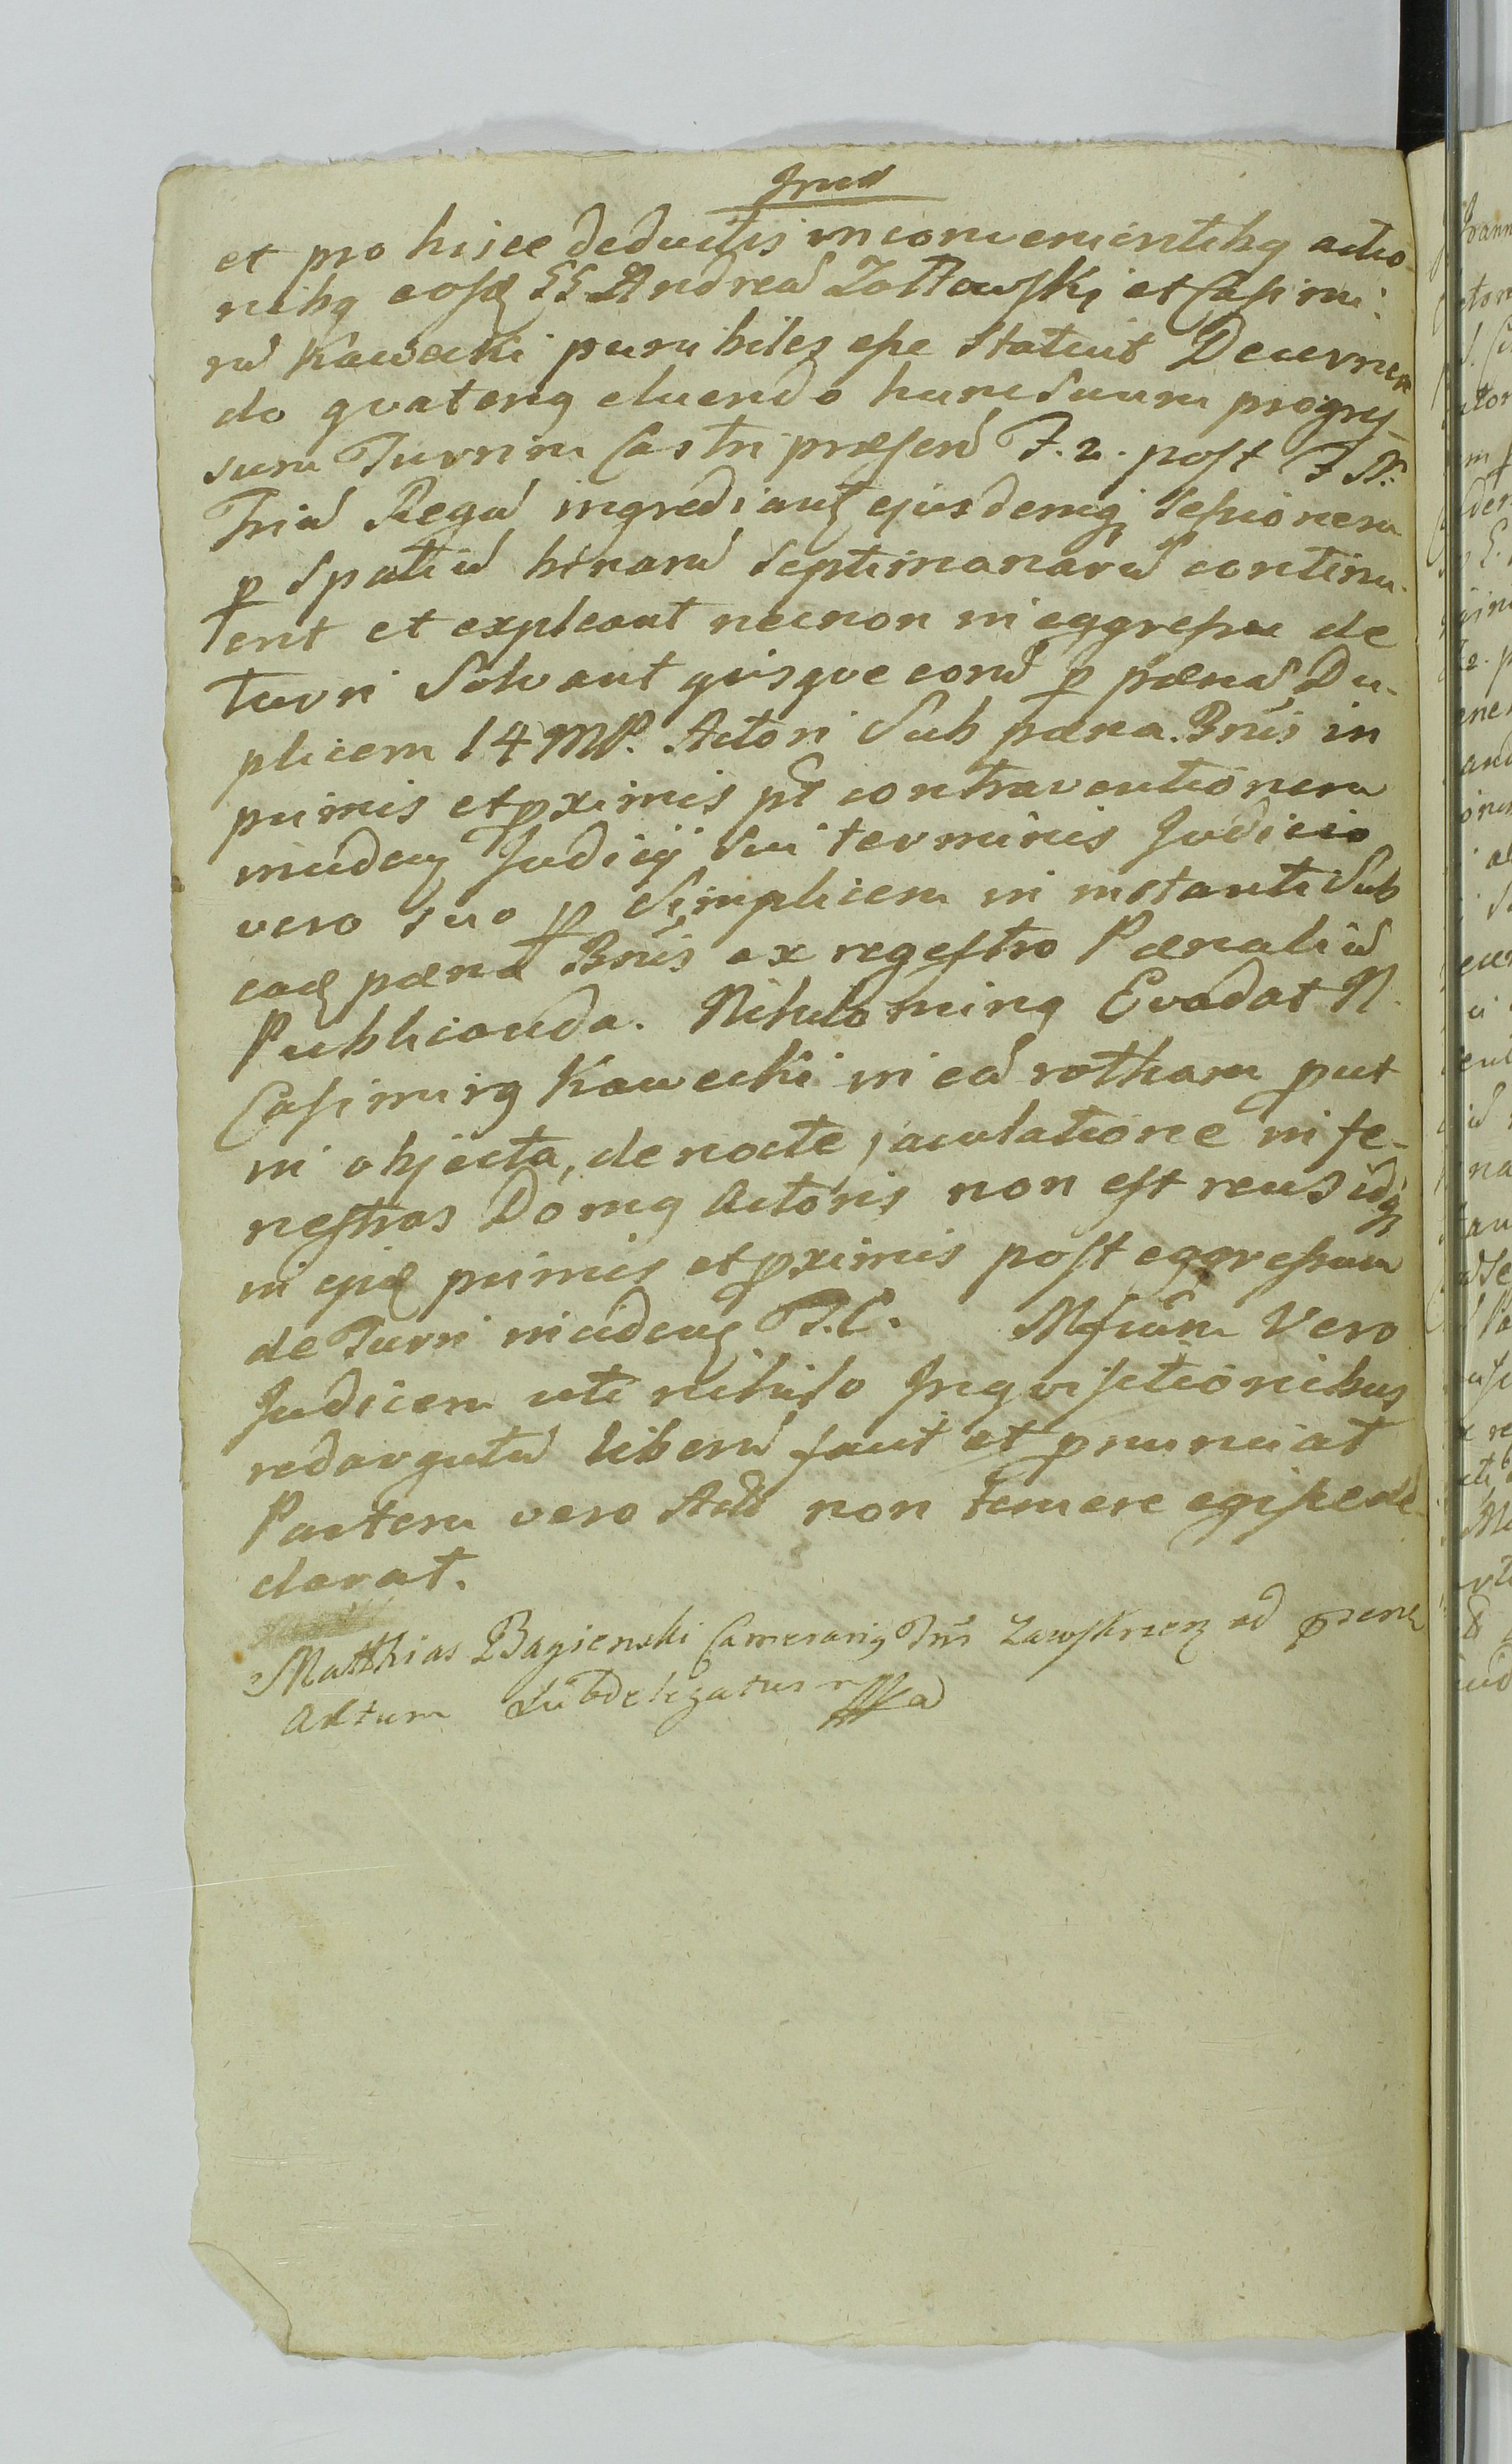 et pro hisce deductis inconvenientibq actio
nibq eosd SS Andread Zołtowski et Casimi:
rud Kawecki punibiles esse Statuit Decernen
do qvatenq eluendo hunc suum progres
sum Turrim Castri præsend F. 2. post F
Triu Regu ingrediant ejusdemq Sessionem
p Spatiu binaru Septimanaru continu-
ent et expleant necnon in eggressu de
turri Solvant qvisqve eoru p pænas Du-
plicem 14 MP. Actori Sub pæna Bnis in
primis et pximis pt contraventionem
incidenq Judicij Sui terminis Judicio
vero suo p Simplicem in instanti Sub
ead pæna Bnis ex regestro Pænaliu
Publicanda. Nihilominq Evadat N.
Casimirq Kawecki in ead rotham put
in objecta, de nocte jaculatione in fe-
nestras Domq Actoris non est reus idq
in ejsd primis et pximis post eggressum
de Turri incidenq T. C. Mfium Vero
Judicem uti nihilo Inqvisitionibus
redargutu liberu facit et pnunciat
Partem vero Act non temere egisse de-
clarat.
Matthias Bagienski Camerariq Tris Zawskrzen ad psens
Actum Subdelegatus